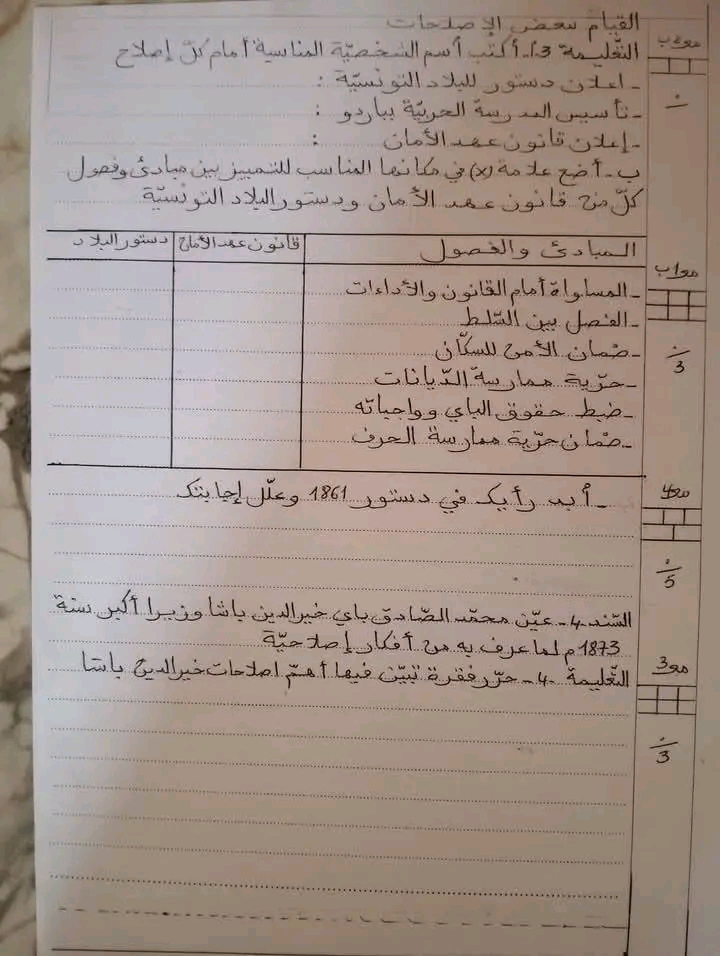 القيام ببعض الإصلاحات
التّعليمة 3-أ- أكتب أسم الشخصيّة المناسبة أمام كلّ إصلاح
- اعلان دستور للبلاد التونسيّة :
- تأسيس المدرسة الحربيّة بباردو :
- إعلان قانون عهد الأمان :
ب- أضع علامة (x) في مكانها المناسب للتمييز بين مبادئ وفصول
كلّ من قانون عهد الأمان ودستور البلاد التونسيّة
المبادئ والفصول قانون عهد الأمان دستور البلاد
- المساواة أمام القانون والأداءات
- الفصل بين السّلط
- ضمان الأمن للسكّان
- حرّية ممارسة الدّيانات
- ضبط حقوق الباي وواجباته
- ضمان حرّية ممارسة الحرف
- أبد رأيك في دستور 1861 وعلّل إجابتك
السّند 4- عيّن محمّد الصّادق باي خيرالدين باشا وزيرا أكبر سنة
1873م لما عرف به من أفكار إصلاحيّة
التّعليمة 4- حرّر فقرة تبيّن فيها أهمّ اصلاحات خيرالدين باشا
مع2ب
مع1ب
/3
مع4
/5
مع3
/3